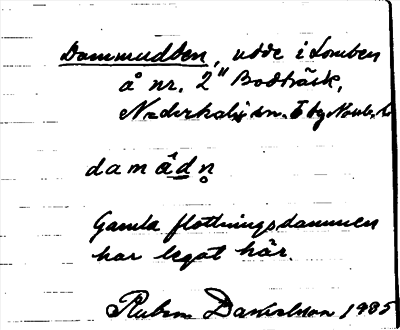 Dammudden, udde i Lomben
å nr. 2" Bodträsk,
Nederkalix sn.
damådn
Gamla flottningsdammen
har legat här.
Ruben Danielsson 1985